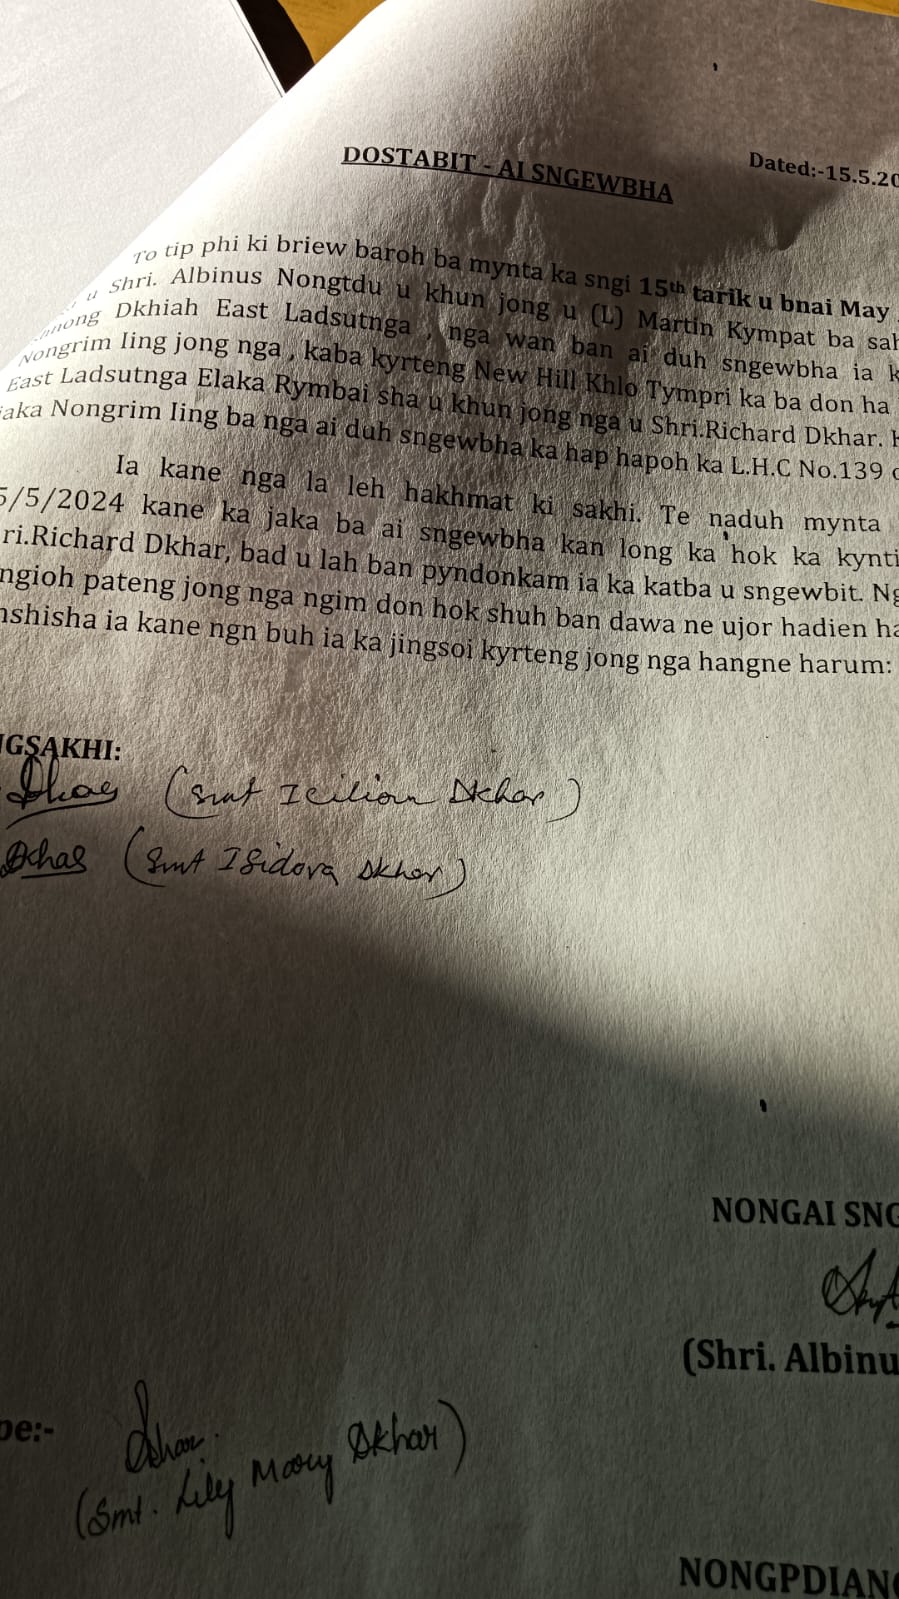 DOSTABIT - AI SNGEWBHA
Dated:-15.5.20
To tip phi ki briew baroh ba mynta ka sngi 15th tarik u bnai May
u Shri. Albinus Nongtdu u khun jong u (L) Martin Kympat ba sah
Dkhiah East Ladsutnga , nga wan ban ai duh sngewbha ia k
Nongrim Iing jong nga , kaba kyrteng New Hill Khlo Tympri ka ba don ha
East Ladsutnga Elaka Rymbai sha u khun jong nga u Shri.Richard Dkhar.
jaka Nongrim Iing ba nga ai duh sngewbha ka hap hapoh ka L.H.C No.139
Ia kane nga la leh hakhmat ki sakhi. Te naduh mynta
5/5/2024 kane ka jaka ba ai sngewbha kan long ka hok ka kynti
ri.Richard Dkhar, bad u lah ban pyndonkam ia ka katba u sngewbit. Ng
ngioh pateng jong nga ngim don hok shuh ban dawa ne ujor hadien ha
nshisha ia kane ngn buh ia ka jingsoi kyrteng jong nga hangne harum:
NGSAKHI:
Dkhar (Smt Icilian Dkhar)
Dkhar (Smt Isidora Dkhar)
NONGAI SNG
(Shri. Albinu
be:-
Dkhar.
(Smt. Lily Mary Dkhar)
NONGPDIANG